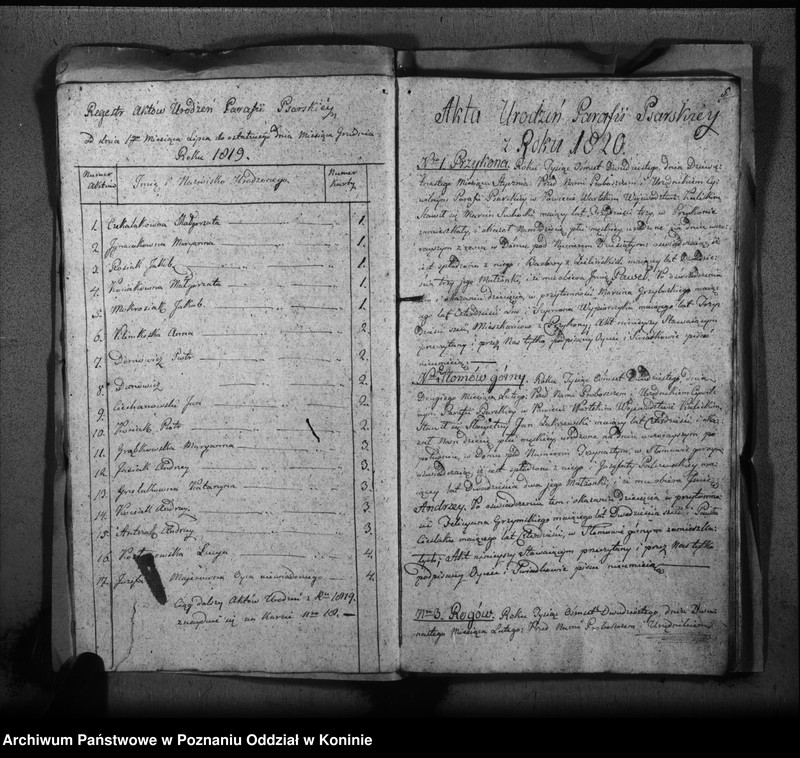 Regestr Aktów Urodzeń Parafii Psarskiéy,
od dnia 1go Miesiąca Lipca do ostatniego dnia Miesiąca Grudnia
Roku 1819.
Numer Aktów
Imię i Nazwisko Urodzonego
Numer karty
1. Czekalakowna Małgorzata 1.
2. Maryanna 1.
3. Jakub 1.
4. Małgorzata 1.
5. Jakub 1.
6. Anna 2.
7. Piotr 2.
8. 2.
9. Ciechanowski Jan 2.
10. Piotr 2.
11. Grąbkowska Maryanna 3.
12. Jasiak Andrzey 3.
13. Katarzyna 3.
14. Andrzey 3.
15. Antczak Andrzey 3.
16. Łucya 4.
17. Józefa Majewszczonka Oyca niewiadomego 4.
Ciąg dalszy Aktów Urodzeń z Ru 1819
znayduie się na karcie Nro 18.
5
Akta Urodzeń Parafii Psarskiéy
z Roku 1820.
Nro 1. Przykona. Roku Tysiąc Ośmset Dwudziestego, dnia Dziewię-
tnastego Miesiąca Stycznia. Przed Nami Proboszczem i Urzędnikiem Cy-
wilnym Parafii Psarskiéy w Powiecie Wartskim Wojewodztwie Kaliskim
Stawił się Marcin maiący lat Czterdzieści trzy, w Przykonie
zamieszkały, i okazał Nam dziecię płci męskiey urodzone na dniu wczo-
rayszym w Domu pod Numerem oświadczaiąc, iż
iest spłodzone z niego i Barbary z maiącey lat Dwadzie-
ścia trzy jego Małżonki, i że mu obiera Imię Paweł. Po oświadczeniu
tem i okazaniu dziecięcia w przytomności Marcina Grzybowskiego maiące-
go lat Czterdzieści i Szymona maiącego lat Trzy-
dzieści sześć, Mieszkańców z Przykony, Akt ninieyszy Stawaiącym
przeczytany i przez Nas tylko podpisany Oyciec i Świadkowie pisać
nieumieią.
Nro 2. Słomów górny. Roku Tysiąc Ośmset Dwudziestego, dnia
Drugiego Miesiąca Lutego. Przed Nami Proboszczem i Urzędnikiem Cywil-
nym Parafii Psarskiey w Powiecie Wartskim Wojewodztwie Kaliskim,
Stawił się Jan Zakrzewski maiący lat Czterdzieści i oka-
zał Nam dziecię płci męskiey urodzone na dniu wczorayszym po
południu, w Domu pod Numerem w Słomowie górnym
oświadczaiąc, iż iest spłodzone z niego i Jozefaty ma-
iącey lat Dwadzieścia dwa jego Małżonki, i że mu obiera Imię
Andrzey. Po oświadczeniu tem i okazaniu Dziecięcia w przytomno-
ści Felicyana Grzymskiego maiącego lat Dwadzieścia sześć i Pawła
Cieślaka maiącego lat Czterdzieści, w Słomowie górnym zamieszka-
łych, Akt ninieyszy Stawaiącym przeczytany i przez Nas tylko
podpisany Oyciec i Świadkowie pisać nieumieią.
Nro 3. Rogów. Roku Tysiąc Ośmset Dwudziestego, dnia Dwu-
nastego Miesiąca Lutego. Przed Nami Proboszczem i Urzędnikiem
Archiwum Państwowe w Poznaniu Oddział w Koninie